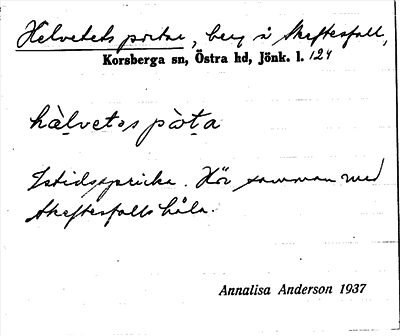 Helvetets portar, berg å Skeftesfall,
Korsberga sn, Östra hd, Jönk. l. 124
hàlvetəs pòrta
Istidsspricka. Hör samman med
Skeftesfalls håla.
Annalisa Anderson 1937